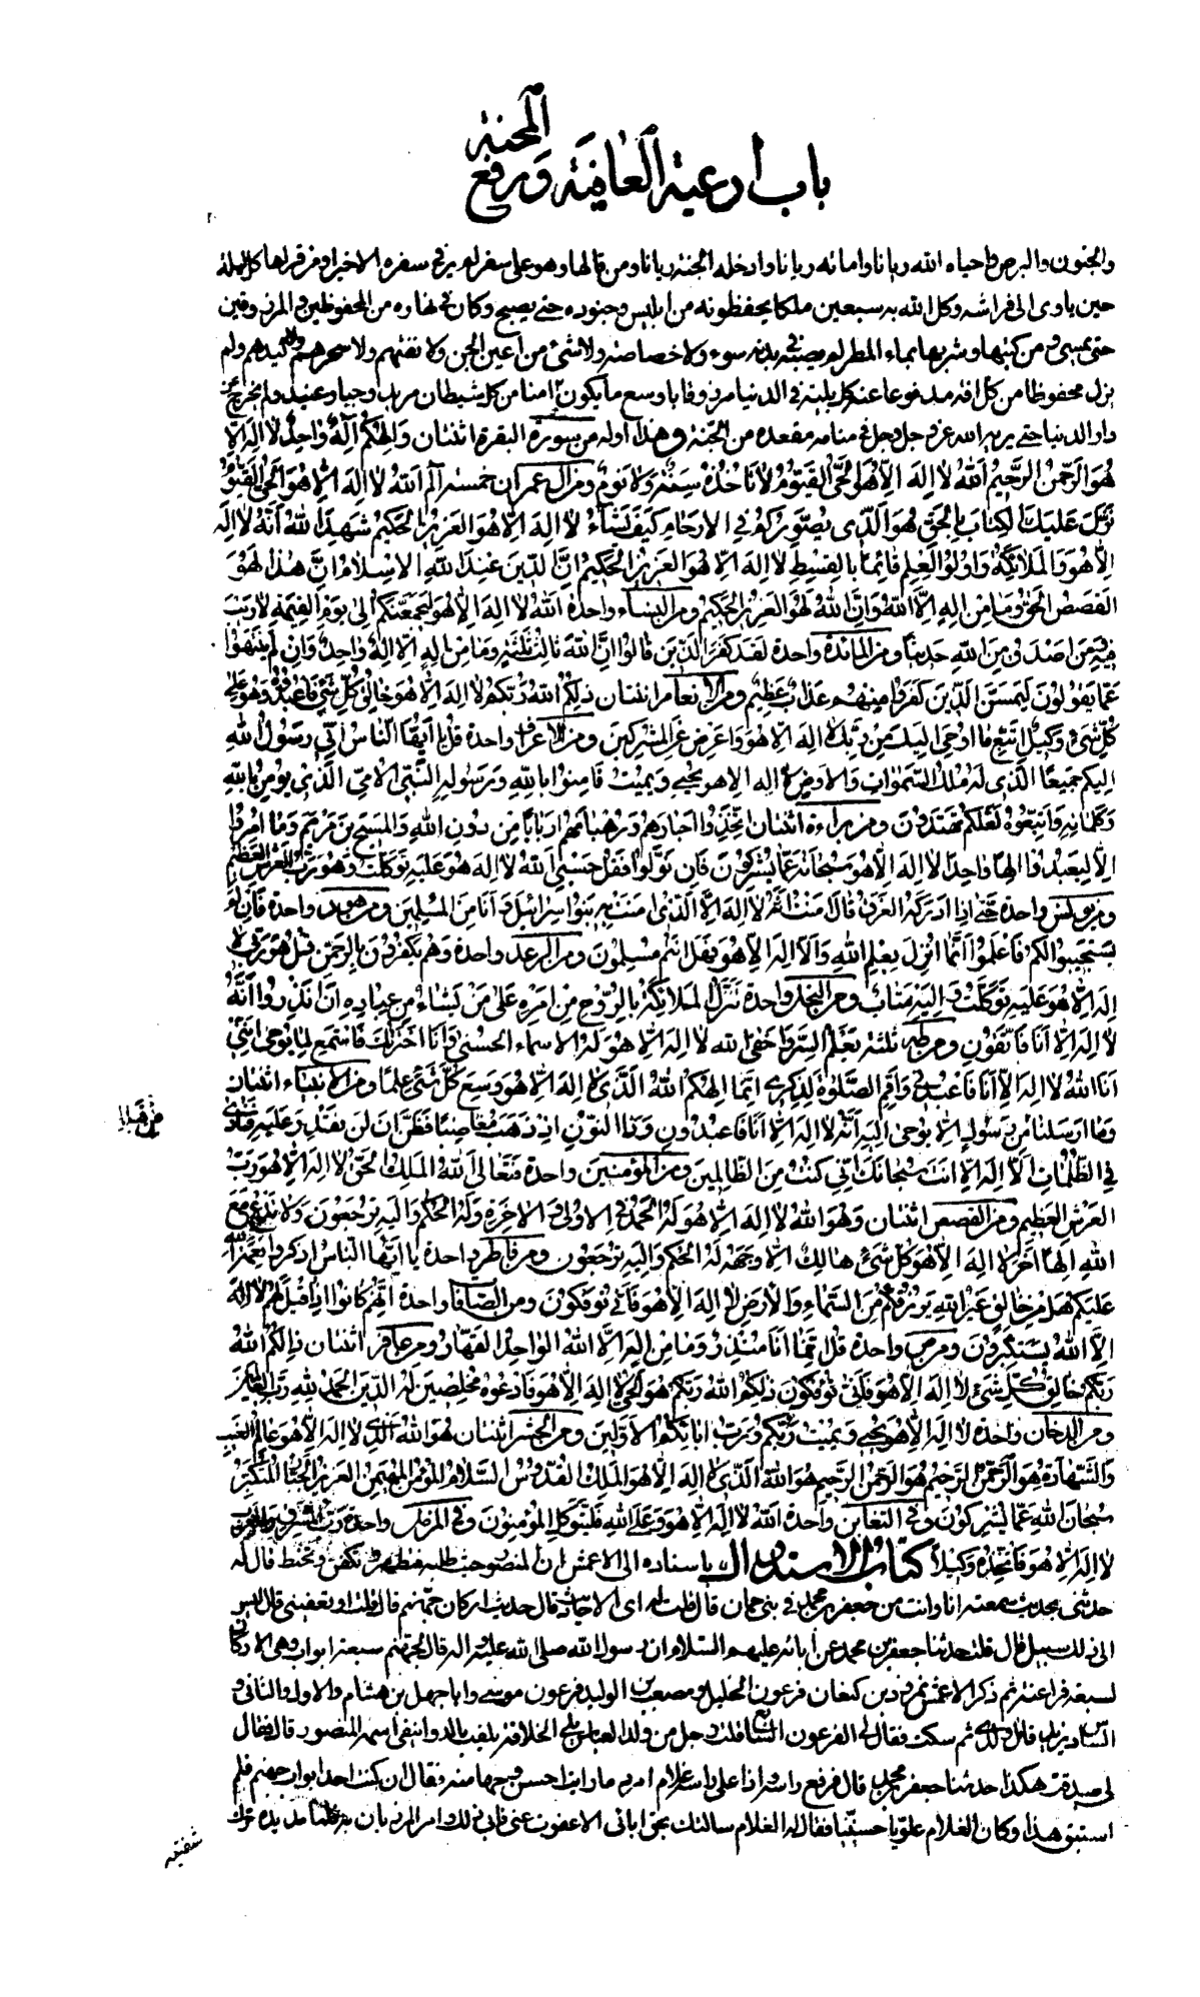 باب ادعية العافية ورفع المحنة
والجنون والبرص فاحياه الله ريانا واماته ريانا وادخله الجنة ريانا ومن قالها وهو على سفر لم ير في سفره الا خيرا ومن قراها كل ليلة
حين ياوى الى فراشه وكل الله به سبعين ملكا يحفظونه من ابليس وجنوده حتى يصبح وكان في نهاره من المحفوظين والمرزوقين
حتى يمسى ومن كتبها وشربها بماء المطر لم يصبه في بدنه سوء ولا خصاصة ولا شئ من اعين الجن ولا نفثهم ولا سحرهم ولا كيدهم ولم
يزل محفوظا من كل افة مدفوعا عنه كل بلية في الدنيا مرزوقا باوسع ما يكون امنا من كل شيطان مريد وجبار عنيد ولم يخرج عن
دار الدنيا حتى يريه الله عز وجل في منامه مقعده من الجنة وهذا اوله من سورة البقرة اثنتان وَاِلٰهُكُمْ اِلٰهٌ وَاحِدٌ لا اِلٰهَ اِلَّا
هُوَ الرَّحْمٰنُ الرَّحيمُ اَللهُ لا اِلهَ اِلاّ هُوَ الحَيُّ القَيُّومُ لا تَاْخُذُهُ سِنَةٌ وَلا نَوْمٌ ومن ال عمران خمسة الم اَللهُ لا اِلهَ اِلا هُوَ الحَيُّ القَيُّومُ
نَزَّلَ عَلَيكَ الكِتابَ بالحَقِّ هُوَ الَّذى يُصَوِّرُكُمْ فِي الارحامِ كَيفَ يَشاءُ لا اِلهَ اِلاّ هُوَ العَزيزُ الحَكيمُ شَهِدَ اللهُ اَنَّهُ لا اِلهَ
اِلا هُوَ وَالمَلائِكَةُ وَاُولُو العِلمِ قائِمًا بِالقِسطِ لا اِلهَ اِلاّ هُوَ العَزيزُ الحَكيمُ اِنَّ الدّينَ عِندَ اللهِ الاِسلامُ اِنَّ هذا لَهُوَ
القَصَصُ الحَقُّ وَما مِن اِلهٍ اِلاَّ اللهُ وَاِنَّ اللهَ لَهُوَ العَزيزُ الحَكيمُ ومن النساء واحدة اَللهُ لا اِلهَ اِلا هُوَ لَيَجمَعَنَّكُم اِلى يَومِ القِيمَةِ لا رَيبَ
فيهِ وَمَن اَصدَقُ مِنَ اللهِ حَديثًا ومن المائدة واحدة لَقَد كَفَرَ الَّذينَ قالُوا اِنَّ اللهَ ثالِثُ ثَلثَةٍ وَما مِن اِلهٍ اِلا اِلهٌ واحِدٌ وَاِن لَم يَنتَهُوا
عَمّا يَقُولُونَ لَيَمَسَّنَّ الَّذينَ كَفَرُوا مِنهُم عَذابٌ عَظيمٌ ومن الانعام اثنتان ذلِكُمُ اللهُ رَبُّكُم لا اِلهَ اِلا هُوَ خالِقُ كُلِّ شَئٍ فَاعبُدُوهُ وَهُوَ عَلى
كُلِّ شَئٍ وَكيلٌ اِتَّبِع ما اُوحِيَ اِلَيكَ مِن رَبِّكَ لا اِلهَ اِلا هُوَ وَاَعرِض عَنِ المُشرِكينَ ومن الاعراف واحدة قُل يا اَيُّهَا النّاسُ اِنّى رَسُولُ اللهِ
اِلَيكُم جَميعًا الَّذى لَهُ مُلكُ السَّمواتِ وَالاَرضِ لا اِلهَ اِلا هُوَ يُحيى وَيُميتُ فَامِنُوا بِاللهِ وَرَسُولِهِ النَّبِىِّ الاُمِّىِّ الَّذى يُؤمِنُ بِاللهِ
وَكَلِماتِهِ وَاتَّبِعُوهُ لَعَلَّكُم تَهتَدُونَ ومن براءة اثنتان اِتَّخَذُوا اَحبارَهُم وَرُهبانَهُم اَربابًا مِن دُونِ اللهِ وَالمَسيحَ بنَ مَريَمَ وَما اُمِرُوا
اِلا لِيَعبُدُوا اِلهًا واحِدًا لا اِلهَ اِلا هُوَ سُبحانَهُ عَمّا يُشرِكُونَ فَاِن تَوَلَّوا فَقُل حَسبِىَ اللهُ لا اِلهَ اِلا هُوَ عَلَيهِ تَوَكَّلتُ وَهُوَ رَبُّ العَرشِ العَظيمِ
ومن يونس واحدة حَتّى اِذا اَدرَكَهُ الغَرَقُ قالَ امَنتُ اَنَّهُ لا اِلهَ اِلاَّ الَّذى امَنَت بِهِ بَنُوا اِسرائيلَ وَاَنَا مِنَ المُسلِمينَ ومن هود واحدة فَاِن لَم
يَستَجيبُوا لَكُم فَاعلَمُوا اَنَّما اُنزِلَ بِعِلمِ اللهِ وَاَن لا اِلهَ اِلا هُوَ فَهَل اَنتُم مُسلِمُونَ ومن الرعد واحدة وَهُم يَكفُرُونَ بِالرَّحمنِ قُل هُوَ رَبّى لا
اِلهَ اِلا هُوَ عَلَيهِ تَوَكَّلتُ وَاِلَيهِ مَتابِ ومن النحل واحدة يُنَزِّلُ المَلائِكَةَ بِالرُّوحِ مِن اَمرِهِ عَلى مَن يَشاءُ مِن عِبادِهِ اَن اَنذِرُوا اَنَّهُ
لا اِلهَ اِلا اَنَا فَاتَّقُونِ ومن طه ثلثة يَعلَمُ السِّرَّ وَاَخفى اَللهُ لا اِلهَ اِلا هُوَ لَهُ الاَسماءُ الحُسنى وَاَنَا اختَرتُكَ فَاستَمِع لِما يُوحى اِنَّنى
اَنَا اللهُ لا اِلهَ اِلا اَنَا فَاعبُدنى وَاَقِمِ الصَّلوةَ لِذِكرى اِنَّما اِلهُكُمُ اللهُ الَّذى لا اِلهَ اِلا هُوَ وَسِعَ كُلَّ شَئٍ عِلمًا ومن الانبياء اثنتان
وَما اَرسَلنا مِن رَسُولٍ اِلا يُوحى اِلَيهِ اَنَّهُ لا اِلهَ اِلا اَنَا فَاعبُدُونِ وَذَا النُّونِ اِذ ذَهَبَ مُغاضِبًا فَظَنَّ اَن لَن نَقدِرَ عَلَيهِ فَنادى
فِى الظُّلُماتِ اَن لا اِلهَ اِلا اَنتَ سُبحانَكَ اِنّى كُنتُ مِنَ الظّالِمينَ ومن المؤمنين واحدة فَتَعالَى اللهُ المَلِكُ الحَقُّ لا اِلهَ اِلا هُوَ رَبُّ
العَرشِ العَظيمِ ومن القصص اثنتان وَهُوَ اللهُ لا اِلهَ اِلا هُوَ لَهُ الحَمدُ فِى الاُولى وَالاخِرَةِ وَلَهُ الحُكمُ وَاِلَيهِ تُرجَعُونَ وَلا تَدعُ مَعَ
اللهِ اِلهًا اخَرَ لا اِلهَ اِلا هُوَ كُلُّ شَئٍ هالِكٌ اِلا وَجهَهُ لَهُ الحُكمُ وَاِلَيهِ تُرجَعُونَ ومن فاطر واحدة يا اَيُّهَا النّاسُ اذكُرُوا نِعمَةَ اللهِ
عَلَيكُم هَل مِن خالِقٍ غَيرُ اللهِ يَرزُقُكُم مِنَ السَّماءِ وَالاَرضِ لا اِلهَ اِلا هُوَ فَاَنّى تُؤفَكُونَ ومن الصافات واحدة اِنَّهُم كانُوا اِذا قيلَ لَهُم لا اِلهَ
اِلاَّ اللهُ يَستَكبِرُونَ ومن ص واحدة قُل اِنَّما اَنَا مُنذِرٌ وَما مِن اِلهٍ اِلاَّ اللهُ الواحِدُ القَهّارُ ومن غافر اثنتان ذلِكُمُ اللهُ
رَبُّكُم خالِقُ كُلِّ شَئٍ لا اِلهَ اِلا هُوَ فَاَنّى تُؤفَكُونَ ذلِكُمُ اللهُ رَبُّكُم هُوَ الحَىُّ لا اِلهَ اِلا هُوَ فَادعُوهُ مُخلِصينَ لَهُ الدّينَ الحَمدُ لِلّهِ رَبِّ العالَمينَ
ومن الدخان واحدة لا اِلهَ اِلا هُوَ يُحيى وَيُميتُ رَبُّكُم وَرَبُّ ابائِكُمُ الاَوَّلينَ ومن الحشر اثنتان هُوَ اللهُ الَّذى لا اِلهَ اِلا هُوَ عالِمُ الغَيبِ
وَالشَّهادَةِ هُوَ الرَّحمنُ الرَّحيمُ هُوَ اللهُ الَّذى لا اِلهَ اِلا هُوَ المَلِكُ القُدُّوسُ السَّلامُ المُؤمِنُ المُهَيمِنُ العَزيزُ الجَبّارُ المُتَكَبِّرُ
سُبحانَ اللهِ عَمّا يُشرِكُونَ وفى التغابن واحدة اَللهُ لا اِلهَ اِلا هُوَ وَعَلَى اللهِ فَليَتَوَكَّلِ المُؤمِنُونَ وفى المزمل واحدة رَبُّ المَشرِقِ وَالمَغرِبِ
لا اِلهَ اِلا هُوَ فَاتَّخِذهُ وَكيلاً كتاب الاستدراك باسناده الى الاعمش ان المنصور حيث طلبه فتطهر وتكفن وتحنط قال له
حدثنى بحديث سمعته انا وانت من جعفر بن محمد في بنى حمان قال قلت له اى الاحاديث قال حديث اركان جهنم قال قلت او تعفينى قال ليس
الى ذلك سبيل قال قلت حدثنا جعفر بن محمد عن ابائه عليهم السلام ان رسول الله صلى الله عليه واله قال لجهنم سبعة ابواب وهى الاركان
لسبعة فراعنة ثم ذكر الاعمش نمرود بن كنعان فرعون الخليل ومصعب بن الوليد فرعون موسى وابا جهل بن هشام والاول والثانى و
السادس يزيد قاتل ولدى ثم سكت فقال لى الفرعون السابع قلت رجل من ولد العباس يلى الخلافة يلقب بالدوانيقى اسمه المنصور قال فقال
لى صدقت هكذا حدثنا جعفر بن محمد قال فرفع راسه واذا على راسه غلام امرد ما رايت احسن وجها منه فقال ان كنت احد ابواب جهنم فلم
استبق هذا وكان الغلام علويا حسينيا فقال له الغلام سالتك بحق ابائى الا عفوت عنى فابى ذلك وامر المرزبان به فلما مد يده حرك
شفتيه